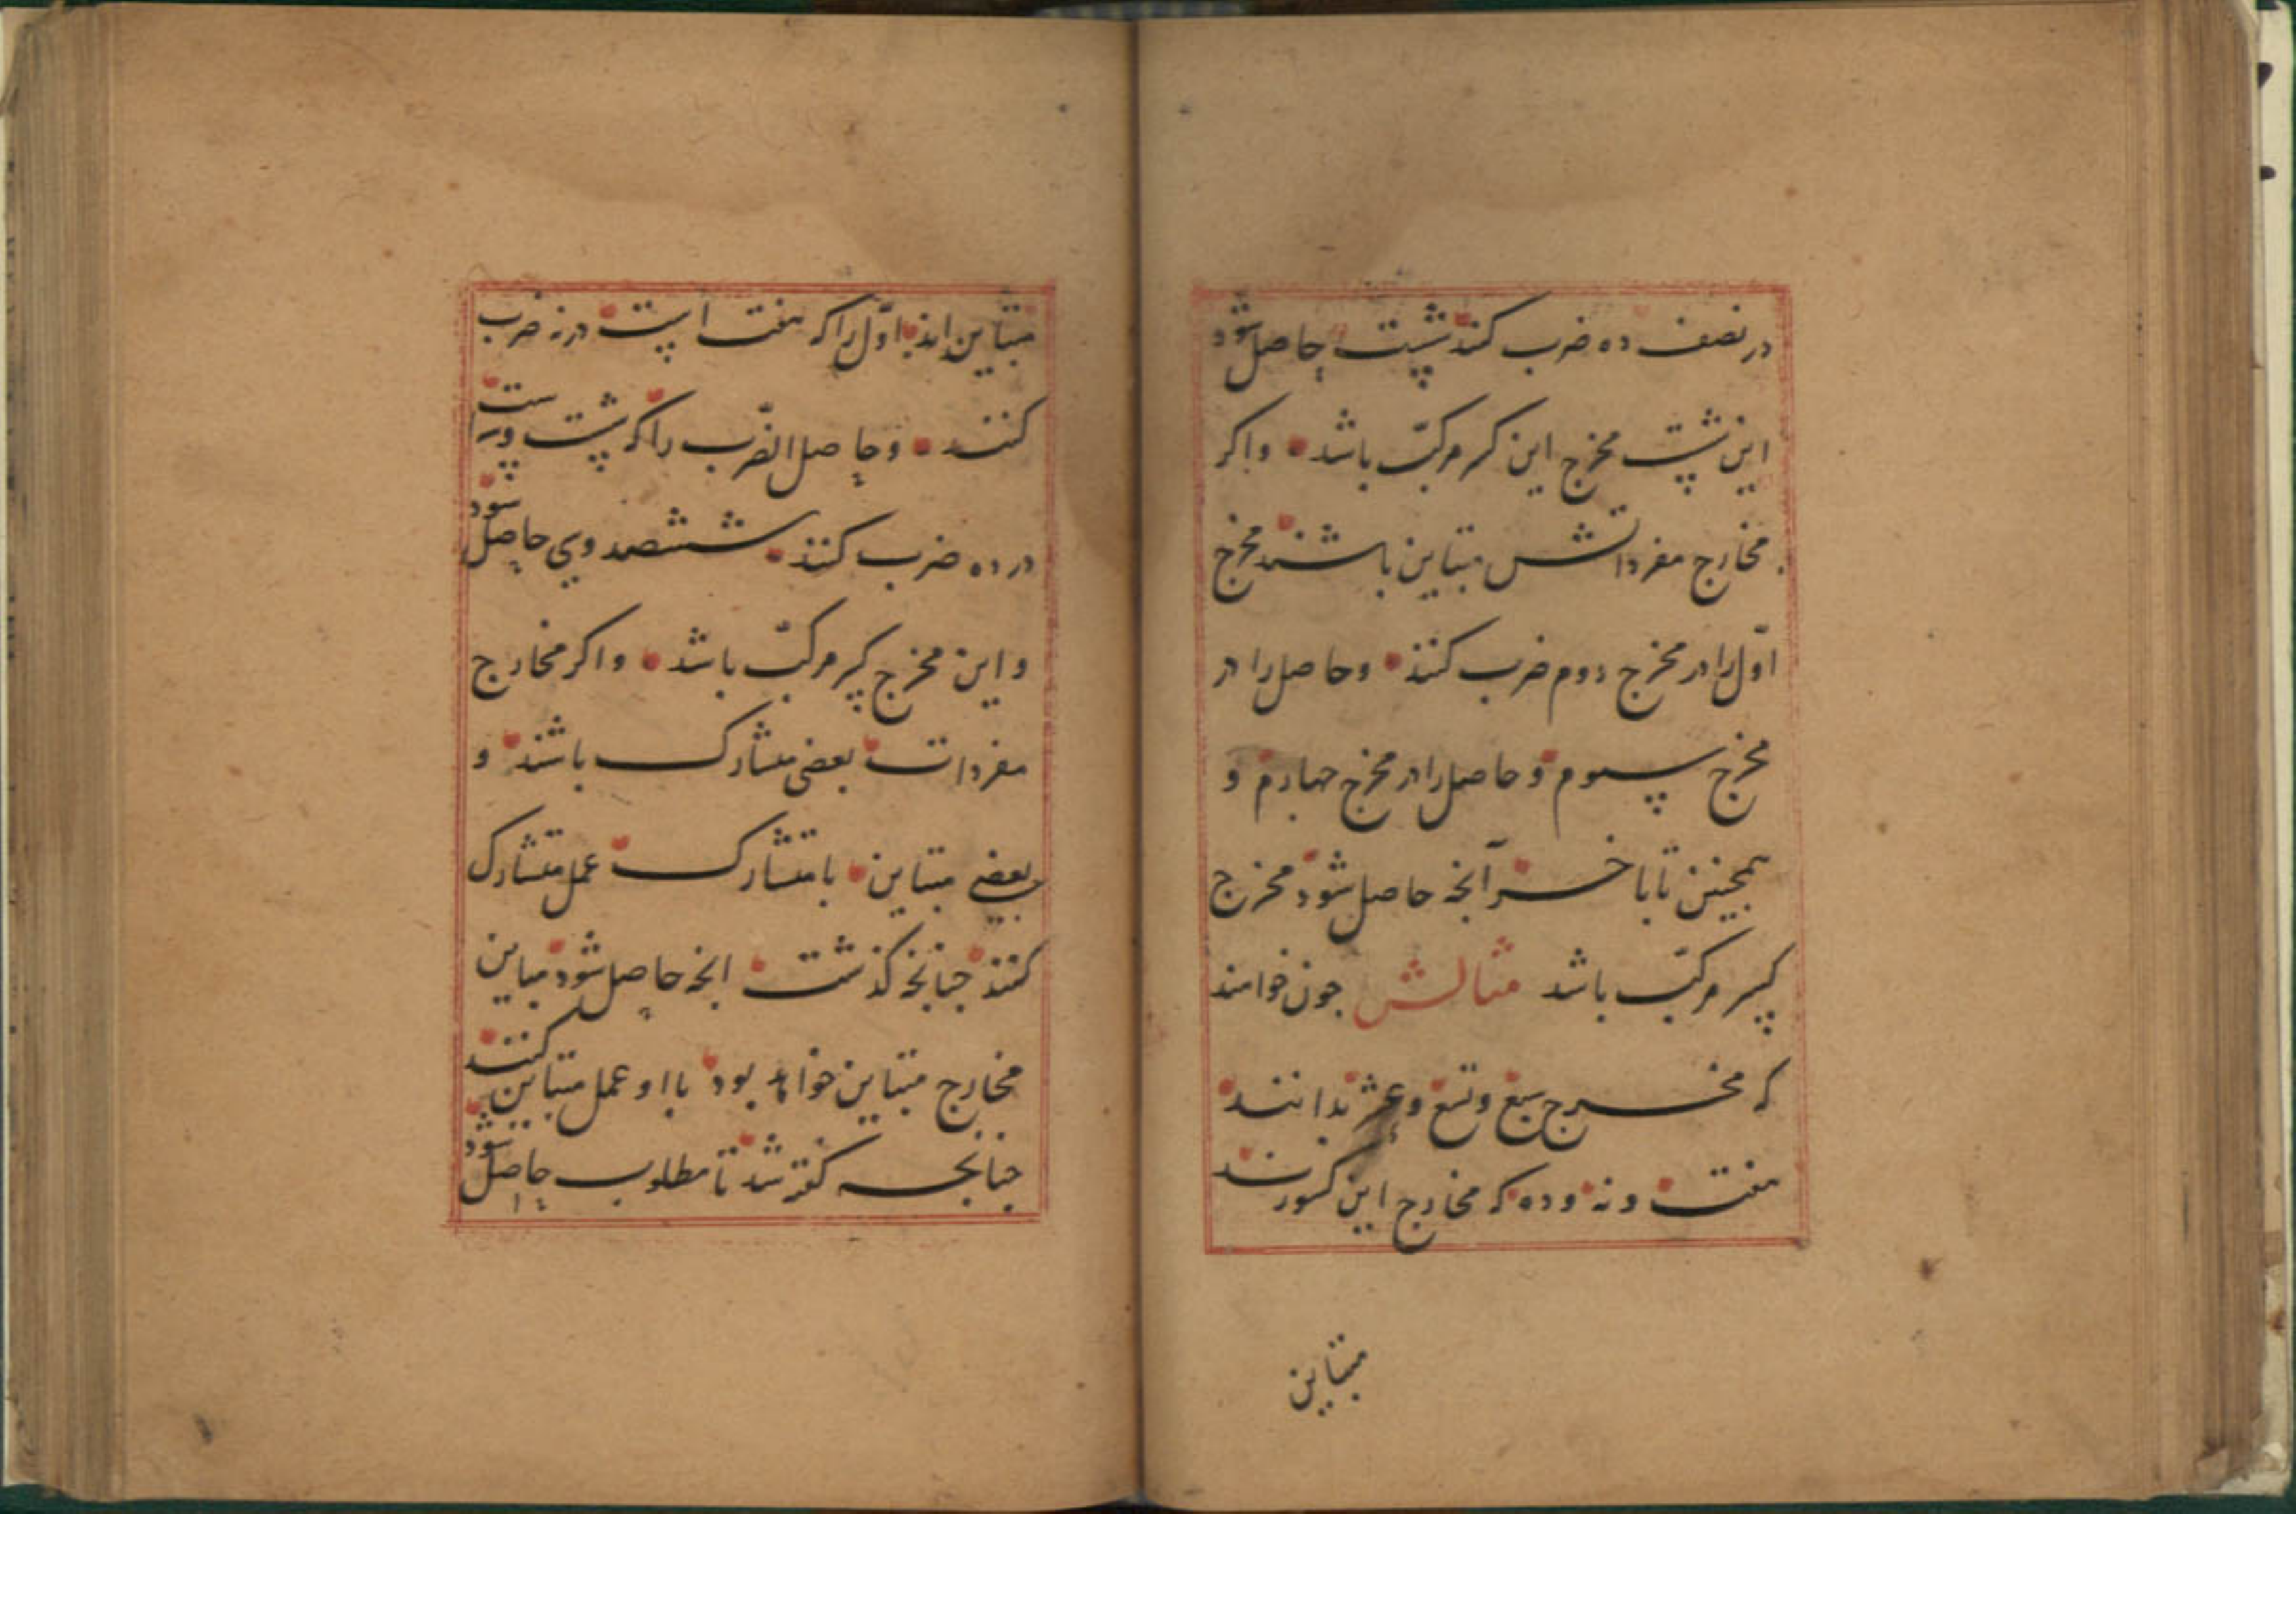 در نصف ده ضرب کنند شصت حاصل شود
این شصت مخرج این کسر مرکّب باشد و اکر
مخارج مفرداتش متباین باشند مخرج
اوّل را در مخرج دوم ضرب کنند و حاصل را در
مخرج سوم و حاصل را در مخرج جهارم و
همجنین تا باخر آنجه حاصل شود مخرج
کسر مرکّب باشد مثالش جون خواهند
که مخرج سبع و تسع و عشر بدانند
هفت و نه و ده که مخارج این کسورند
متباین
متباین اند اوّل را که هفت است در نه ضرب
کنند و حاصل الضّرب را که شصت و سه است
در ده ضرب کنند ششصد و سی حاصل شود
و این مخرج کسر مرکّب باشد و اکر مخارج
مفردات بعضی متشارک باشند و
بعضی متباین با متشارک عمل متشارک
کنند جنانجه کذشت انجه حاصل شود مباین
مخارج متباین خواهد بود با او عمل متباین کنند
جنانجه کفته شد تا مطلوب حاصل شود